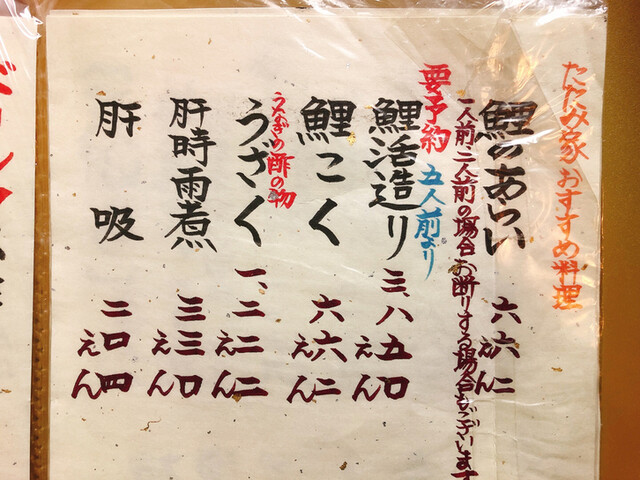 たたみ家おすすめ料理
鯉のあらい 六六二えん
一人前、二人前の場合お断りする場合もございます
要予約 五人前より
鯉活造り 三、八五〇えん
鯉こく 六六二えん
うざく 一、二二二えん
うなぎの酢の物
肝時雨煮 三三〇えん
肝吸 二〇四えん